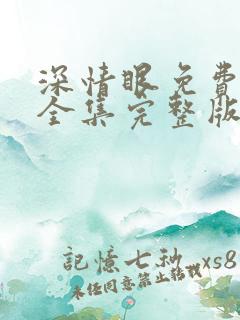 深情眼免費
全集完整版
記憶七秒 xs8
未经同意禁止转载